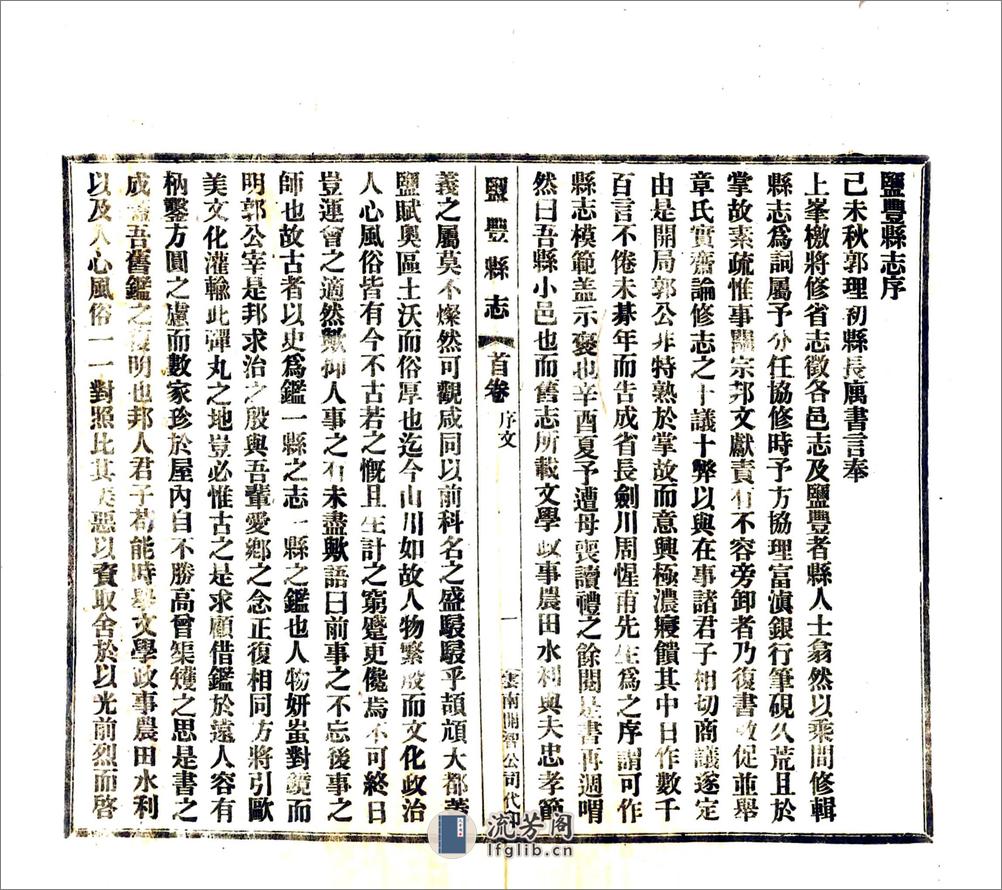 鹽豐縣志序
己未秋郭理初縣長厲書言奉
上峯檄將修省志徵各邑志及鹽豐者縣人士翕然以乘間修輯
縣志爲詞屬予分任協修時予方協理富滇銀行筆硯久荒且於
掌故素疏惟事關宗邦文獻責有不容旁卸者乃復書敦促並舉
章氏實齋論修志之十議十弊以與在事諸君子相切商議遂定
由是開局郭公非特熟於掌故而意興極濃寢饋其中日作數千
百言不倦未朞年而告成省長劍川周惺甫先生爲之序謂可作
縣志模範盖示褒也辛酉夏予遭母喪讀禮之餘閱是書再週喟
然曰吾縣小邑也而舊志所載文學政事農田水利與夫忠孝節
鹽豐縣志 首卷 序文 一 雲南開智公司代印
義之屬莫不燦然可觀咸同以前科名之盛駸駸乎頡頏大都蓋
鹽賦奧區土沃而俗厚也迄今山川如故人物繁殷而文化政治
人心風俗皆有今不古若之慨且生計之窮蹙更儳焉不可終日
豈連會之適然歟抑人事之有未盡歟語曰前事之不忘後事之
師也故古者以史爲鑑一縣之志一縣之鑑也人物妍蚩對鏡而
明郭公宰是邦求治之殷與吾輩愛鄉之念正復相同方將引歐
美文化灌輸此彈丸之地豈必惟古之是求顧借鑑於遠人容有
枘鑿方圓之慮而數家珍於屋內自不勝高曾榘矱之思是書之
成蓋吾舊鑑之復明也邦人君子苟能時舉文學政事農田水利
以及人心風俗一一對照比其美惡以資取舍於以光前烈而啓
流芳阁
lfglib.cn